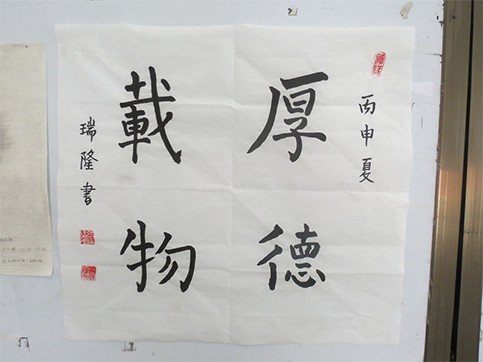 丙申夏
厚德
載物
瑞隆書